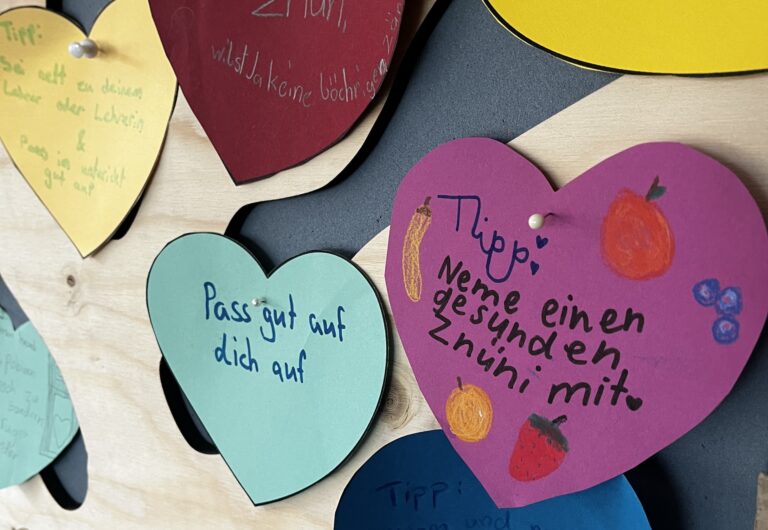 Tipp:
Sei nett zu deinem
Lehrer oder Lehrerin
&
Pass im unterricht
gut auf
Znüni,
willst Ja keine böchrigen
Pass gut auf
dich auf
Tipp:
Neme einen
gesunden
Znüni mit.
Tipp: